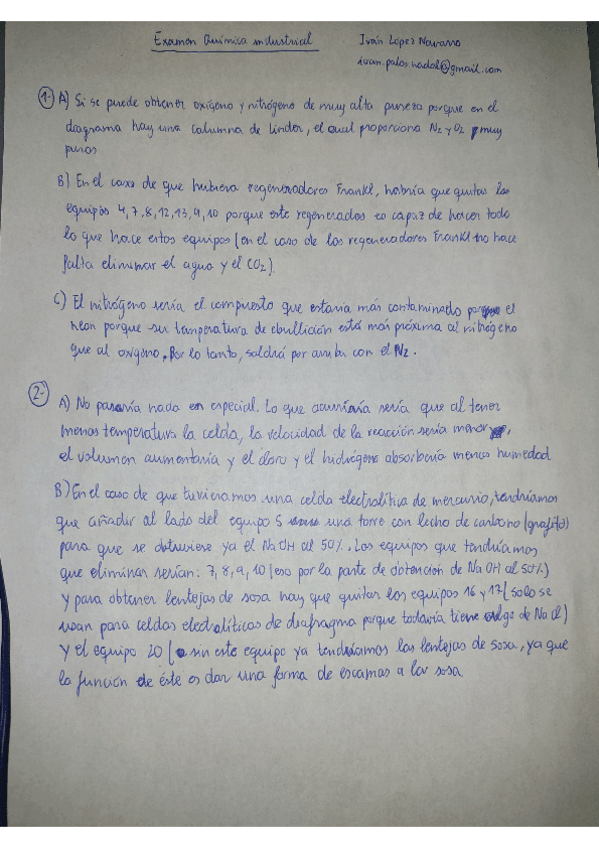 Examen Química industrial
Iván López Navarro
ivan.palos.nadal@gmail.com
1- A) Si se puede obtener oxígeno y nitrógeno de muy alta pureza porque en el
diagrama hay una columna de Linder, el cual proporciona N2 y O2 muy
puros
B) En el caso de que hubiera regeneradores Frankl, habría que quitar los
equipos 4,7,8,12,13,9,10 porque este regenerados es capaz de hacer todo
lo que hace estos equipos (en el caso de los regeneradores Frankl no hace
falta eliminar el agua y el CO2).
C) El nitrógeno sería el compuesto que estaría más contaminado por el
neon porque su temperatura de ebullición está más próxima al nitrógeno
que al oxígeno. Por lo tanto, saldrá por arriba con el N2.
2- A) No pasaría nada en especial. Lo que ocurriría sería que al tener
menos temperatura la celda, la velocidad de la reacción sería menor,
el volumen aumentaría y el cloro y el hidrógeno absorbería menos humedad
B) En el caso de que tuvieramos una celda electrolítica de mercurio, tendríamos
que añadir al lado del equipo 5 una torre con lecho de carbono (grafito)
para que se obtuviese ya el NaOH al 50%. Los equipos que tendríamos
que eliminar serían: 7,8,9,10 (eso por la parte de obtención de NaOH al 50%)
y para obtener lentejas de sosa hay que quitar los equipos 16 y 17 (solo se
usan para celdas electrolíticas de diafragma porque todavía tiene algo de NaCl)
y el equipo 20 (sin este equipo ya tendríamos las lentejas de sosa, ya que
la función de éste es dar una forma de escamas a la sosa